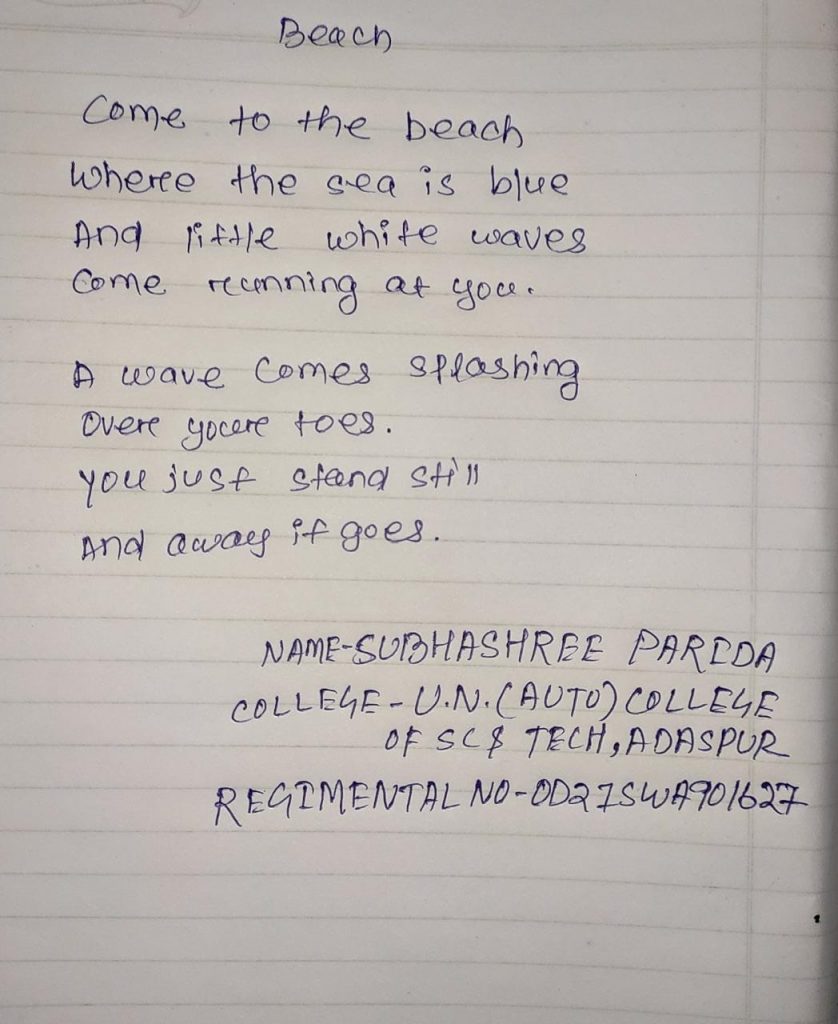 Beach
Come to the beach
Where the sea is blue
And little white waves
Come running at you.
A wave comes splashing
Over your toes.
You just stand still
And away it goes.
NAME-SUBHASHREE PARIDA
COLLEGE-U.N.(AUTO) COLLEGE
OF SC$ TECH, ADASPUR
REGIMENTAL NO-OD27SWA901627